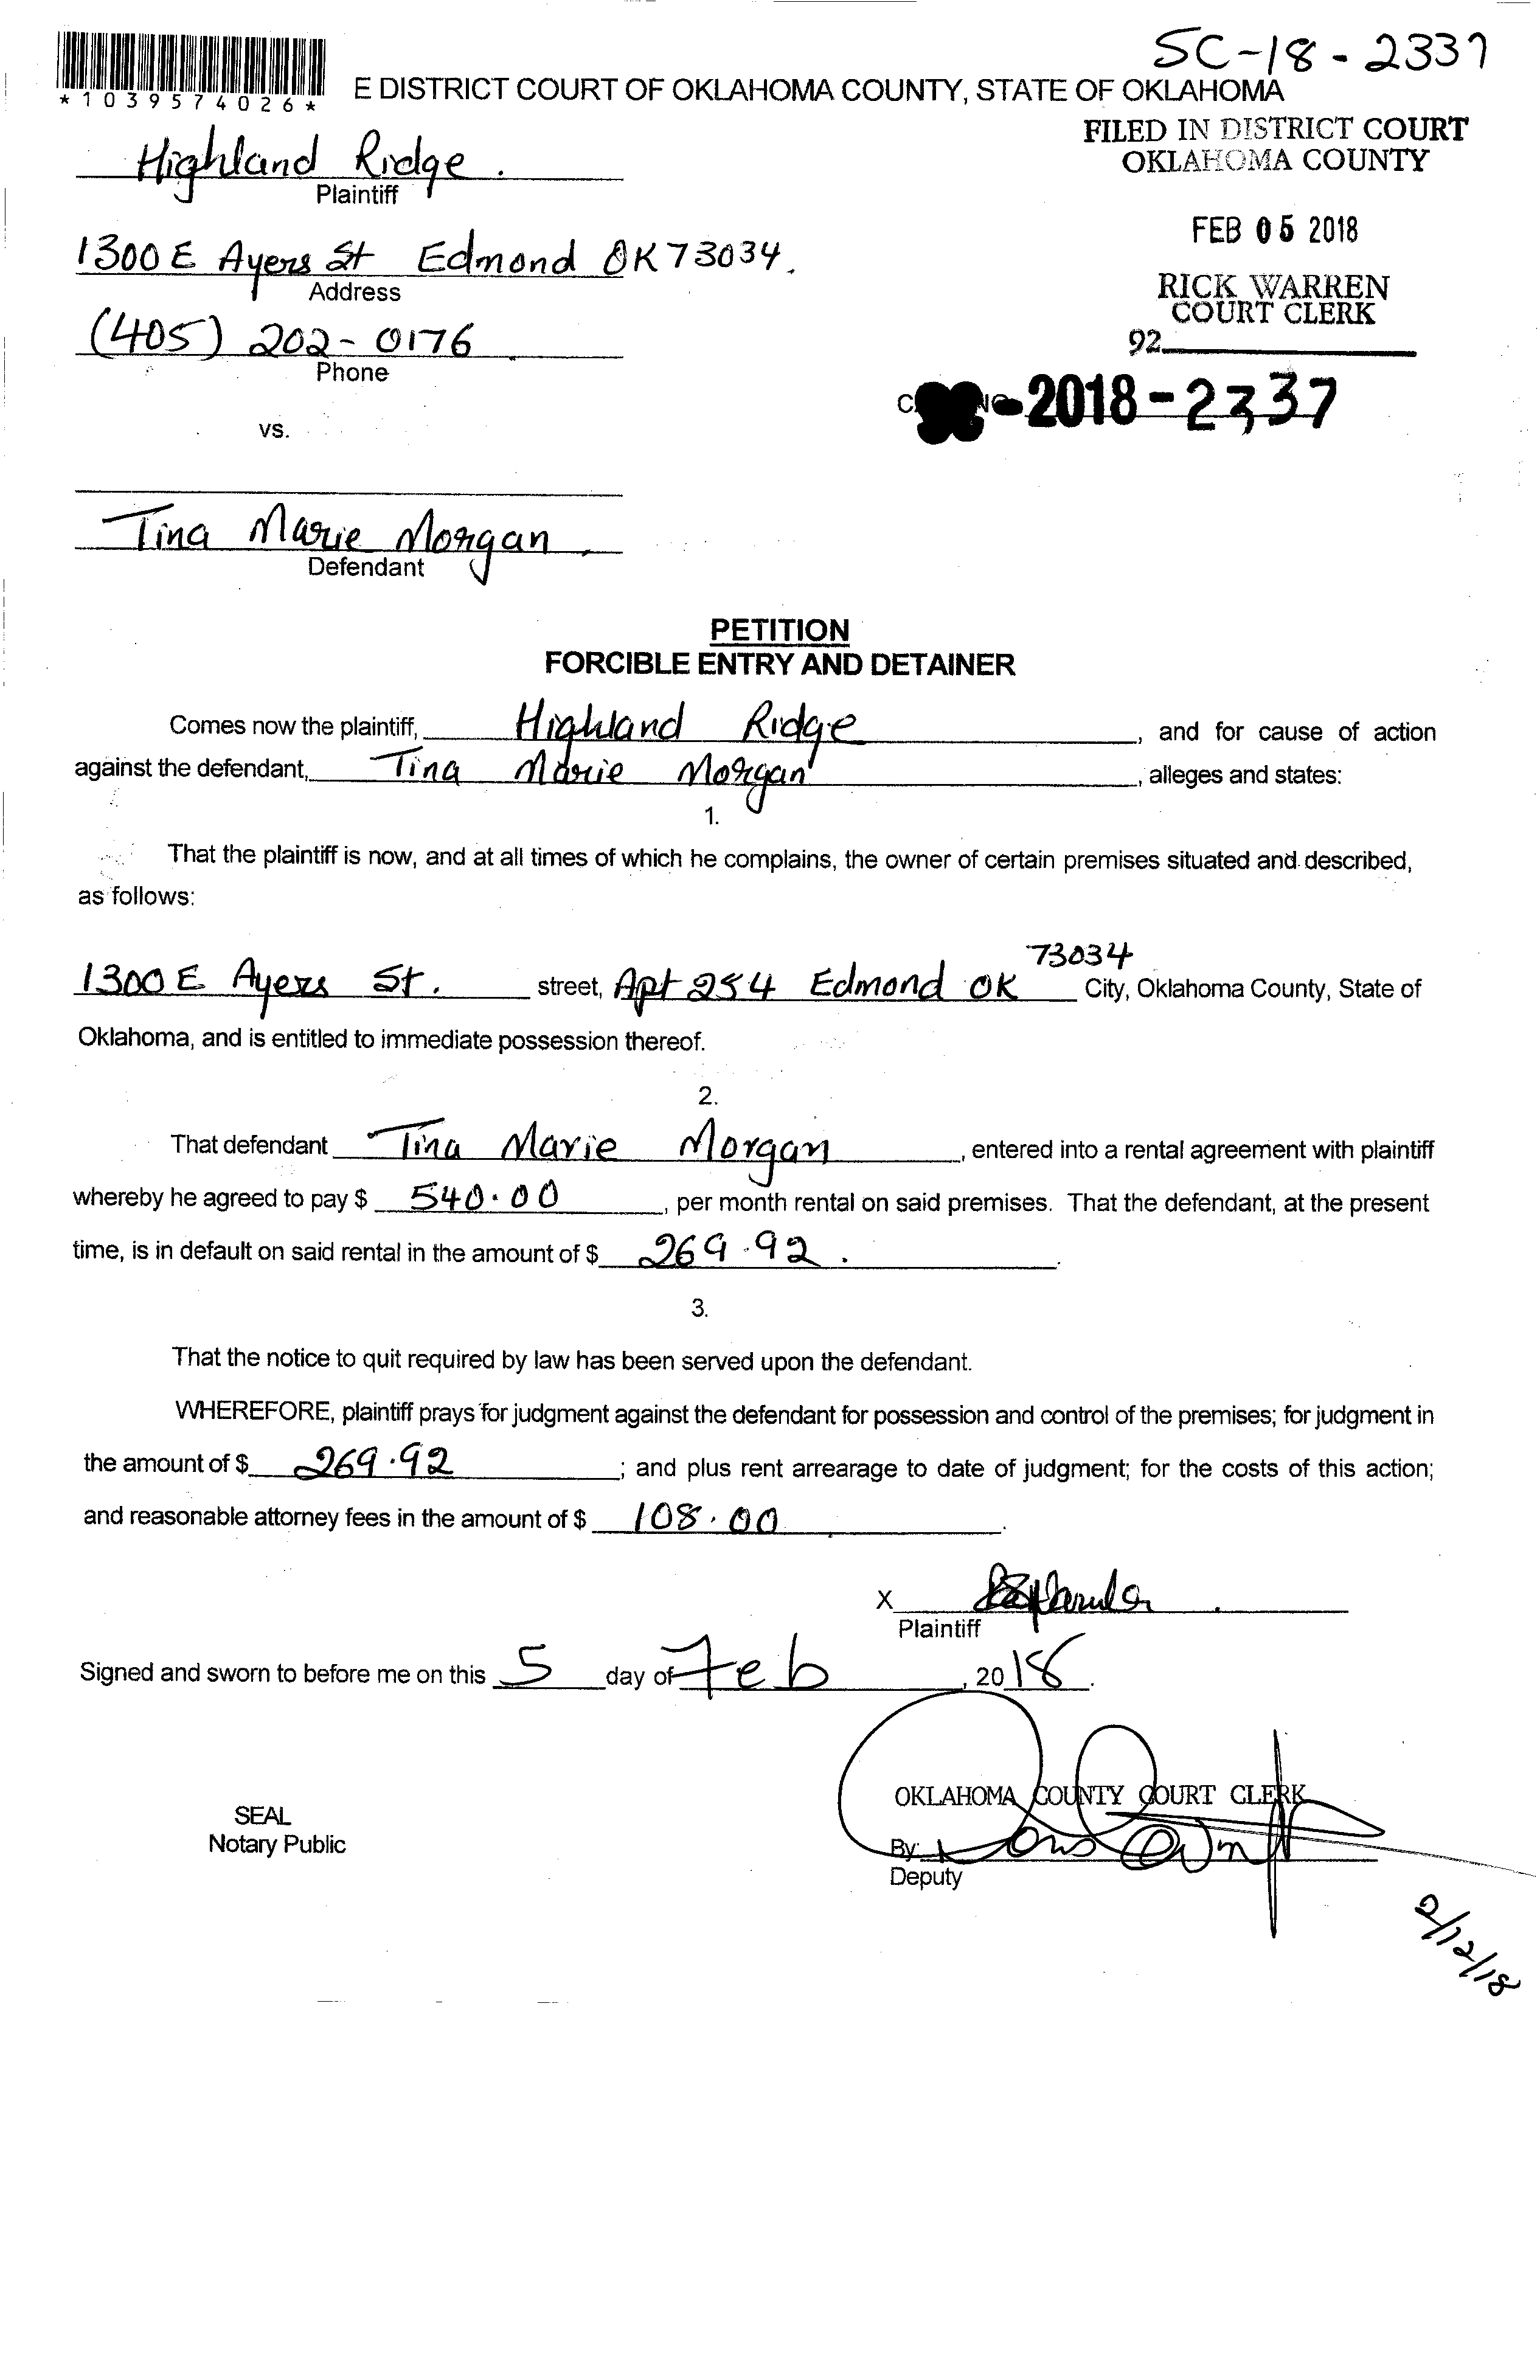 SC-18-2337
*1039574026*
E DISTRICT COURT OF OKLAHOMA COUNTY, STATE OF OKLAHOMA
FILED IN DISTRICT COURT
OKLAHOMA COUNTY
Highland Ridge.
Plaintiff
FEB 05 2018
1300 E Ayers St Edmond OK 73034.
Address
RICK WARREN
COURT CLERK
(405) 202-0176
92
Phone
-2018-2337
vs.
Tina Marie Morgan.
Defendant
PETITION
FORCIBLE ENTRY AND DETAINER
Comes now the plaintiff, Highland Ridge, and for cause of action
against the defendant, Tina Marie Morgan, alleges and states:
1.
That the plaintiff is now, and at all times of which he complains, the owner of certain premises situated and described,
as follows:
73034
1300 E Ayers St. street, Apt 254 Edmond OK City, Oklahoma County, State of
Oklahoma, and is entitled to immediate possession thereof.
2.
That defendant Tina Marie Morgan, entered into a rental agreement with plaintiff
whereby he agreed to pay $ 540.00, per month rental on said premises. That the defendant, at the present
time, is in default on said rental in the amount of $ 269.92.
3.
That the notice to quit required by law has been served upon the defendant.
WHEREFORE, plaintiff prays for judgment against the defendant for possession and control of the premises; for judgment in
the amount of $ 269.92; and plus rent arrearage to date of judgment; for the costs of this action;
and reasonable attorney fees in the amount of $ 108.00.
X
Plaintiff
Signed and sworn to before me on this 5 day of Feb, 2018.
OKLAHOMA COUNTY COURT CLERK
SEAL
Notary Public
By:
Deputy
2/12/18